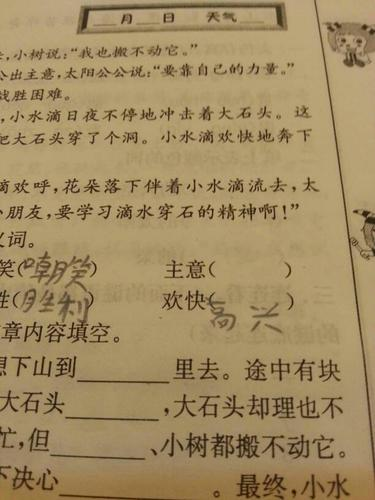 月 日 天气
,小树说:“我也搬不动它。”
公出主意,太阳公公说:“要靠自己的力量。”
战胜困难。
,小水滴日夜不停地冲击着大石头。这
把大石头穿了个洞。小水滴欢快地奔下
滴欢呼,花朵落下伴着小水滴流去,太
小朋友,要学习滴水穿石的精神啊!”
义词。
笑(嘲笑) 主意( )
胜(胜利) 欢快(高兴)
章内容填空。
想下山到______里去。途中有块
大石头______,大石头却理也不
忙,但______、小树都搬不动它。
下决心______。最终,小水